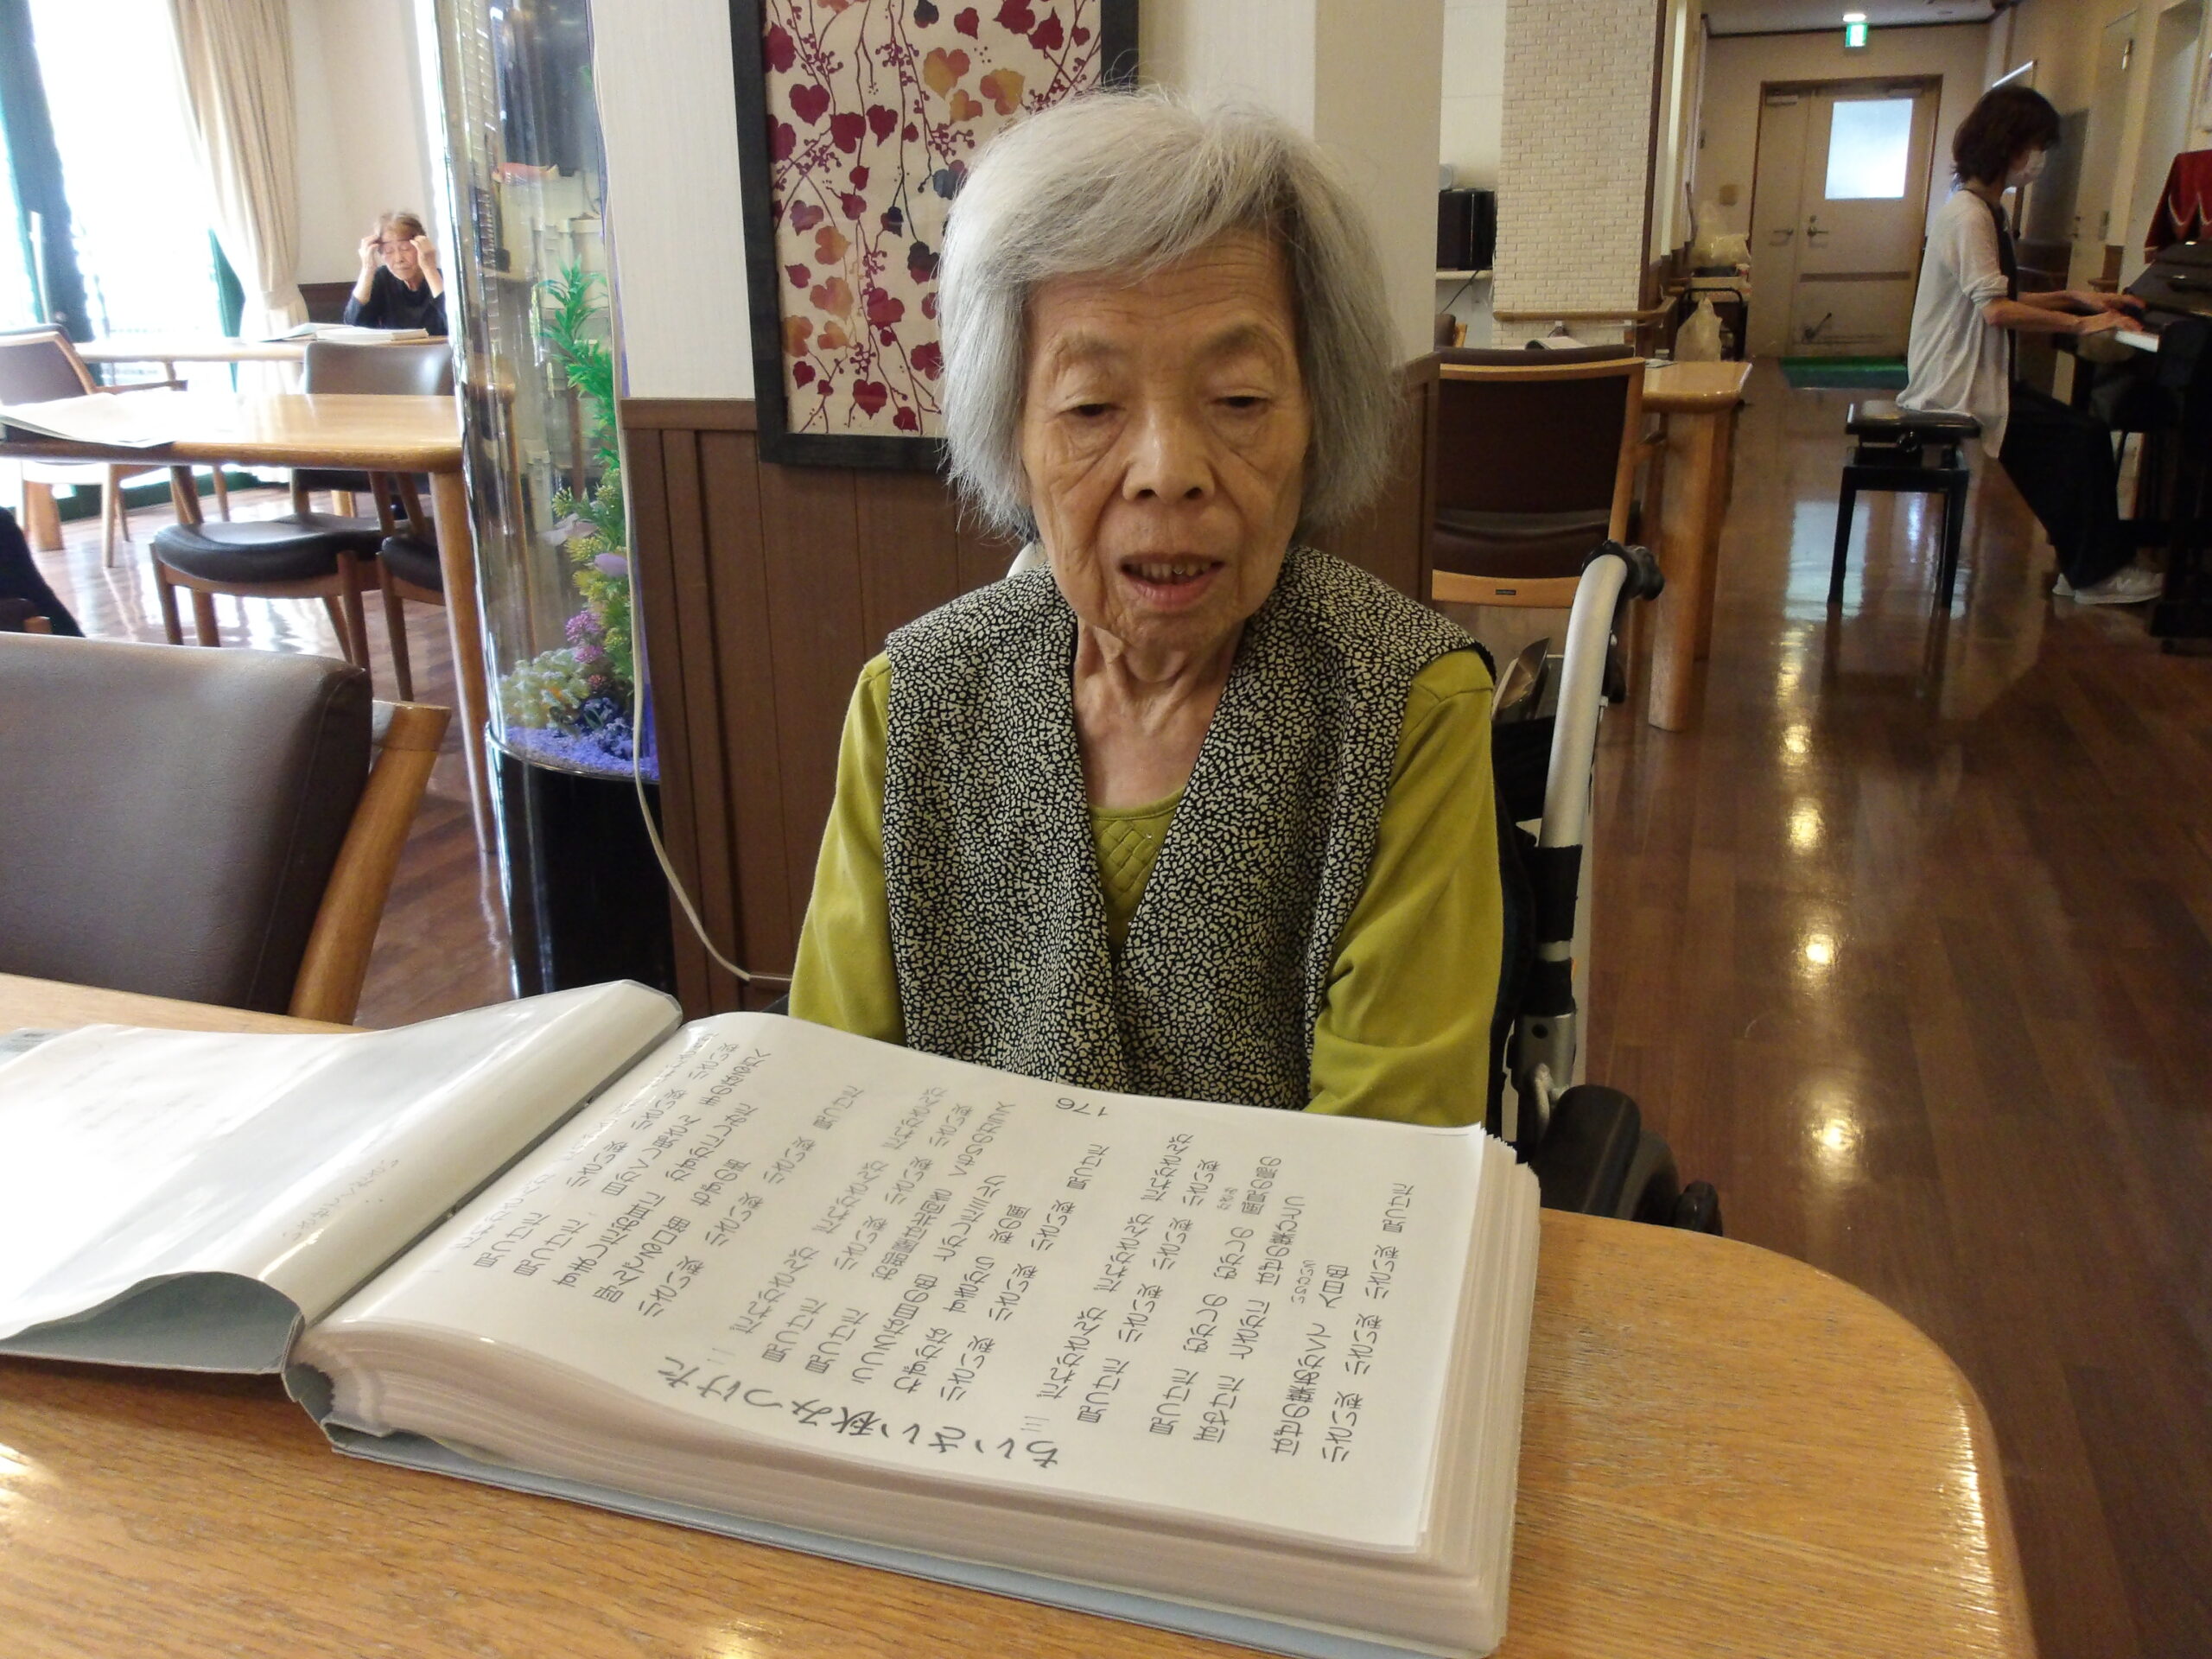 ちいさい秋みつけた
だれかさんが だれかさんが だれかさんが
見つけた 小さい秋 小さい秋 小さい秋
見つけた 目かくし鬼さん 手のなる方へ
すましたお耳に かすかにしみた
呼んでる口笛 もずの声
小さい秋 小さい秋 小さい秋 見つけた
二 だれかさんが だれかさんが だれかさんが
見つけた 小さい秋 小さい秋 小さい秋
見つけた お部屋は北向 くもりのガラス
うつろな目の色 とかしたミルク
わずかな すきから 秋の風
小さい秋 小さい秋 小さい秋 見つけた
176
三 だれかさんが だれかさんが だれかさんが
見つけた 小さい秋 小さい秋 小さい秋
見つけた むかしの むかしの 風見の鳥の
ぼやけた とさかに はぜの葉ひとつ
はぜの葉あかくて 入日色
小さい秋 小さい秋 小さい秋 見つけた